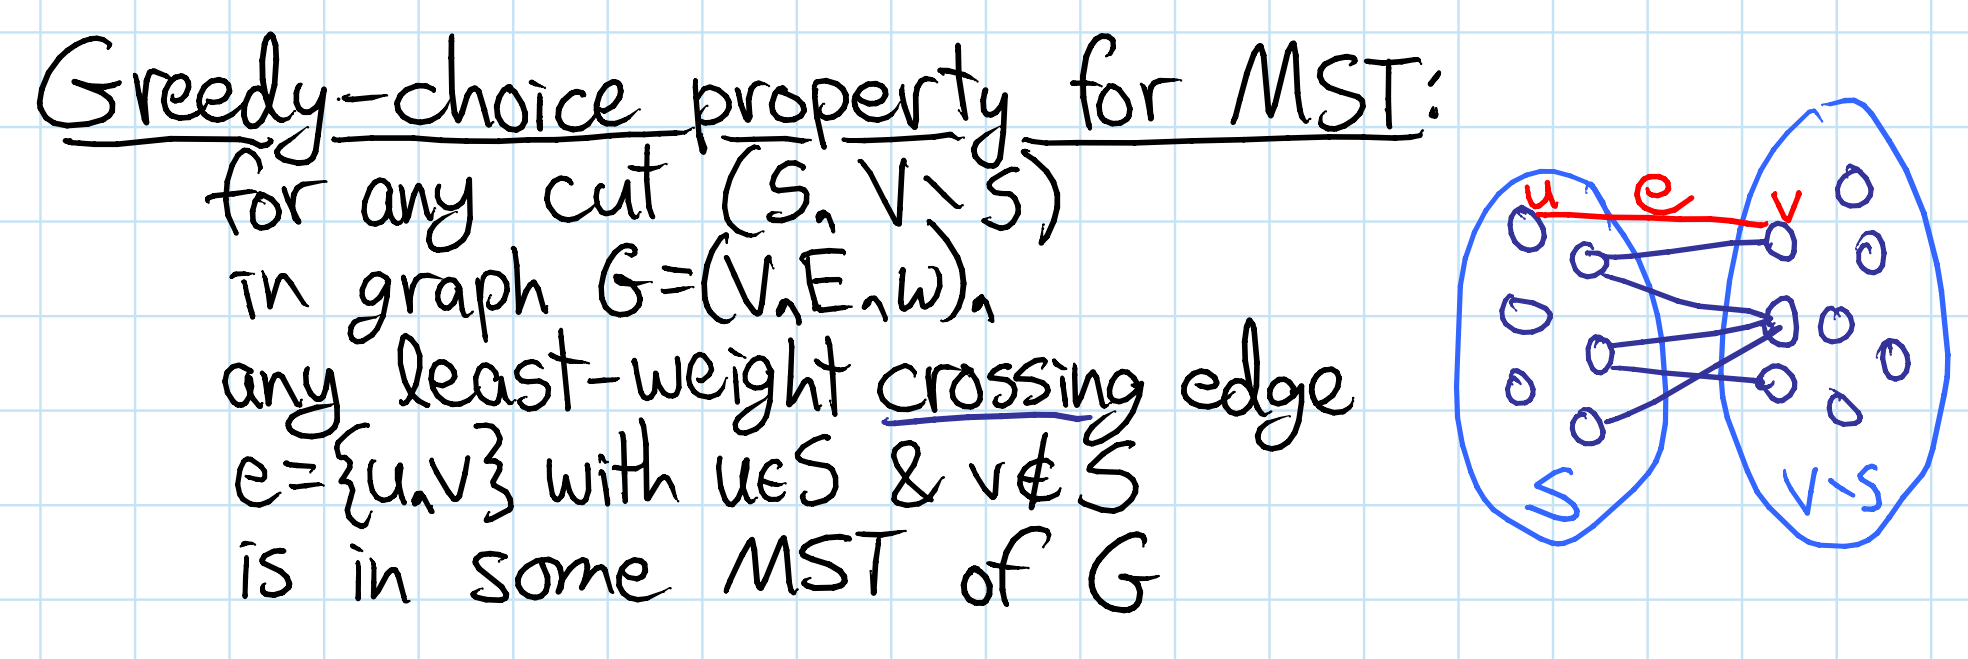 Greedy-choice property for MST:
for any cut (S, V∖S)
in graph G=(V,E,w),
any least-weight crossing edge
e={u,v} with u∈S & v∉S
is in some MST of G
u e v
S
V∖S